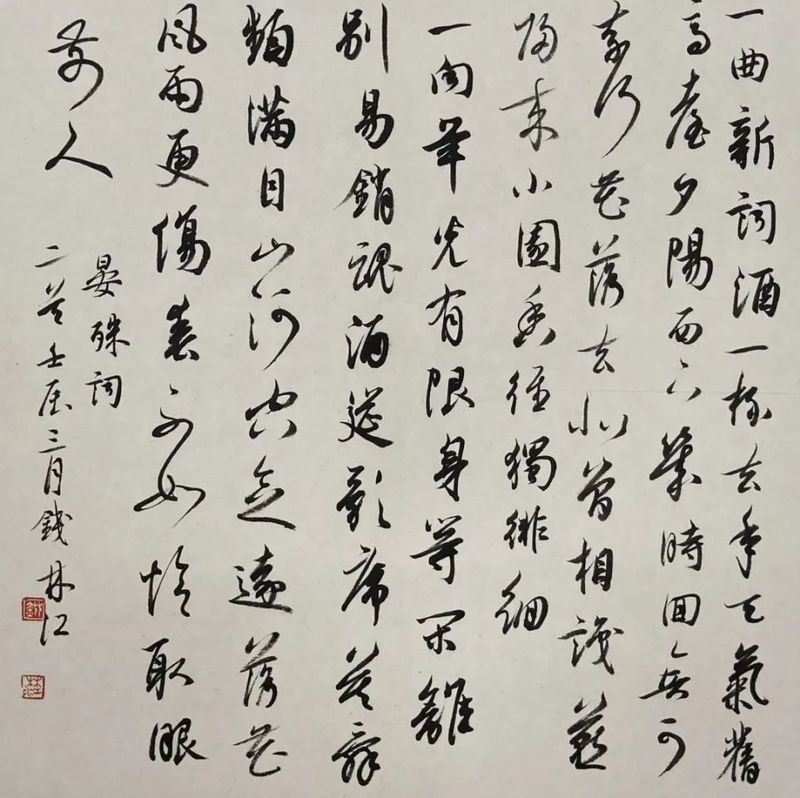 一曲新詞酒一杯去年天氣舊
亭臺夕陽西下幾時回無可
奈何花落去似曾相識燕
歸來小園香徑獨徘徊
一向年光有限身等閑離
別易銷魂酒筵歌席莫辭
頻滿目山河空念遠落花
風雨更傷春不如憐取眼
前人
晏殊詞
二首壬辰三月錢林江